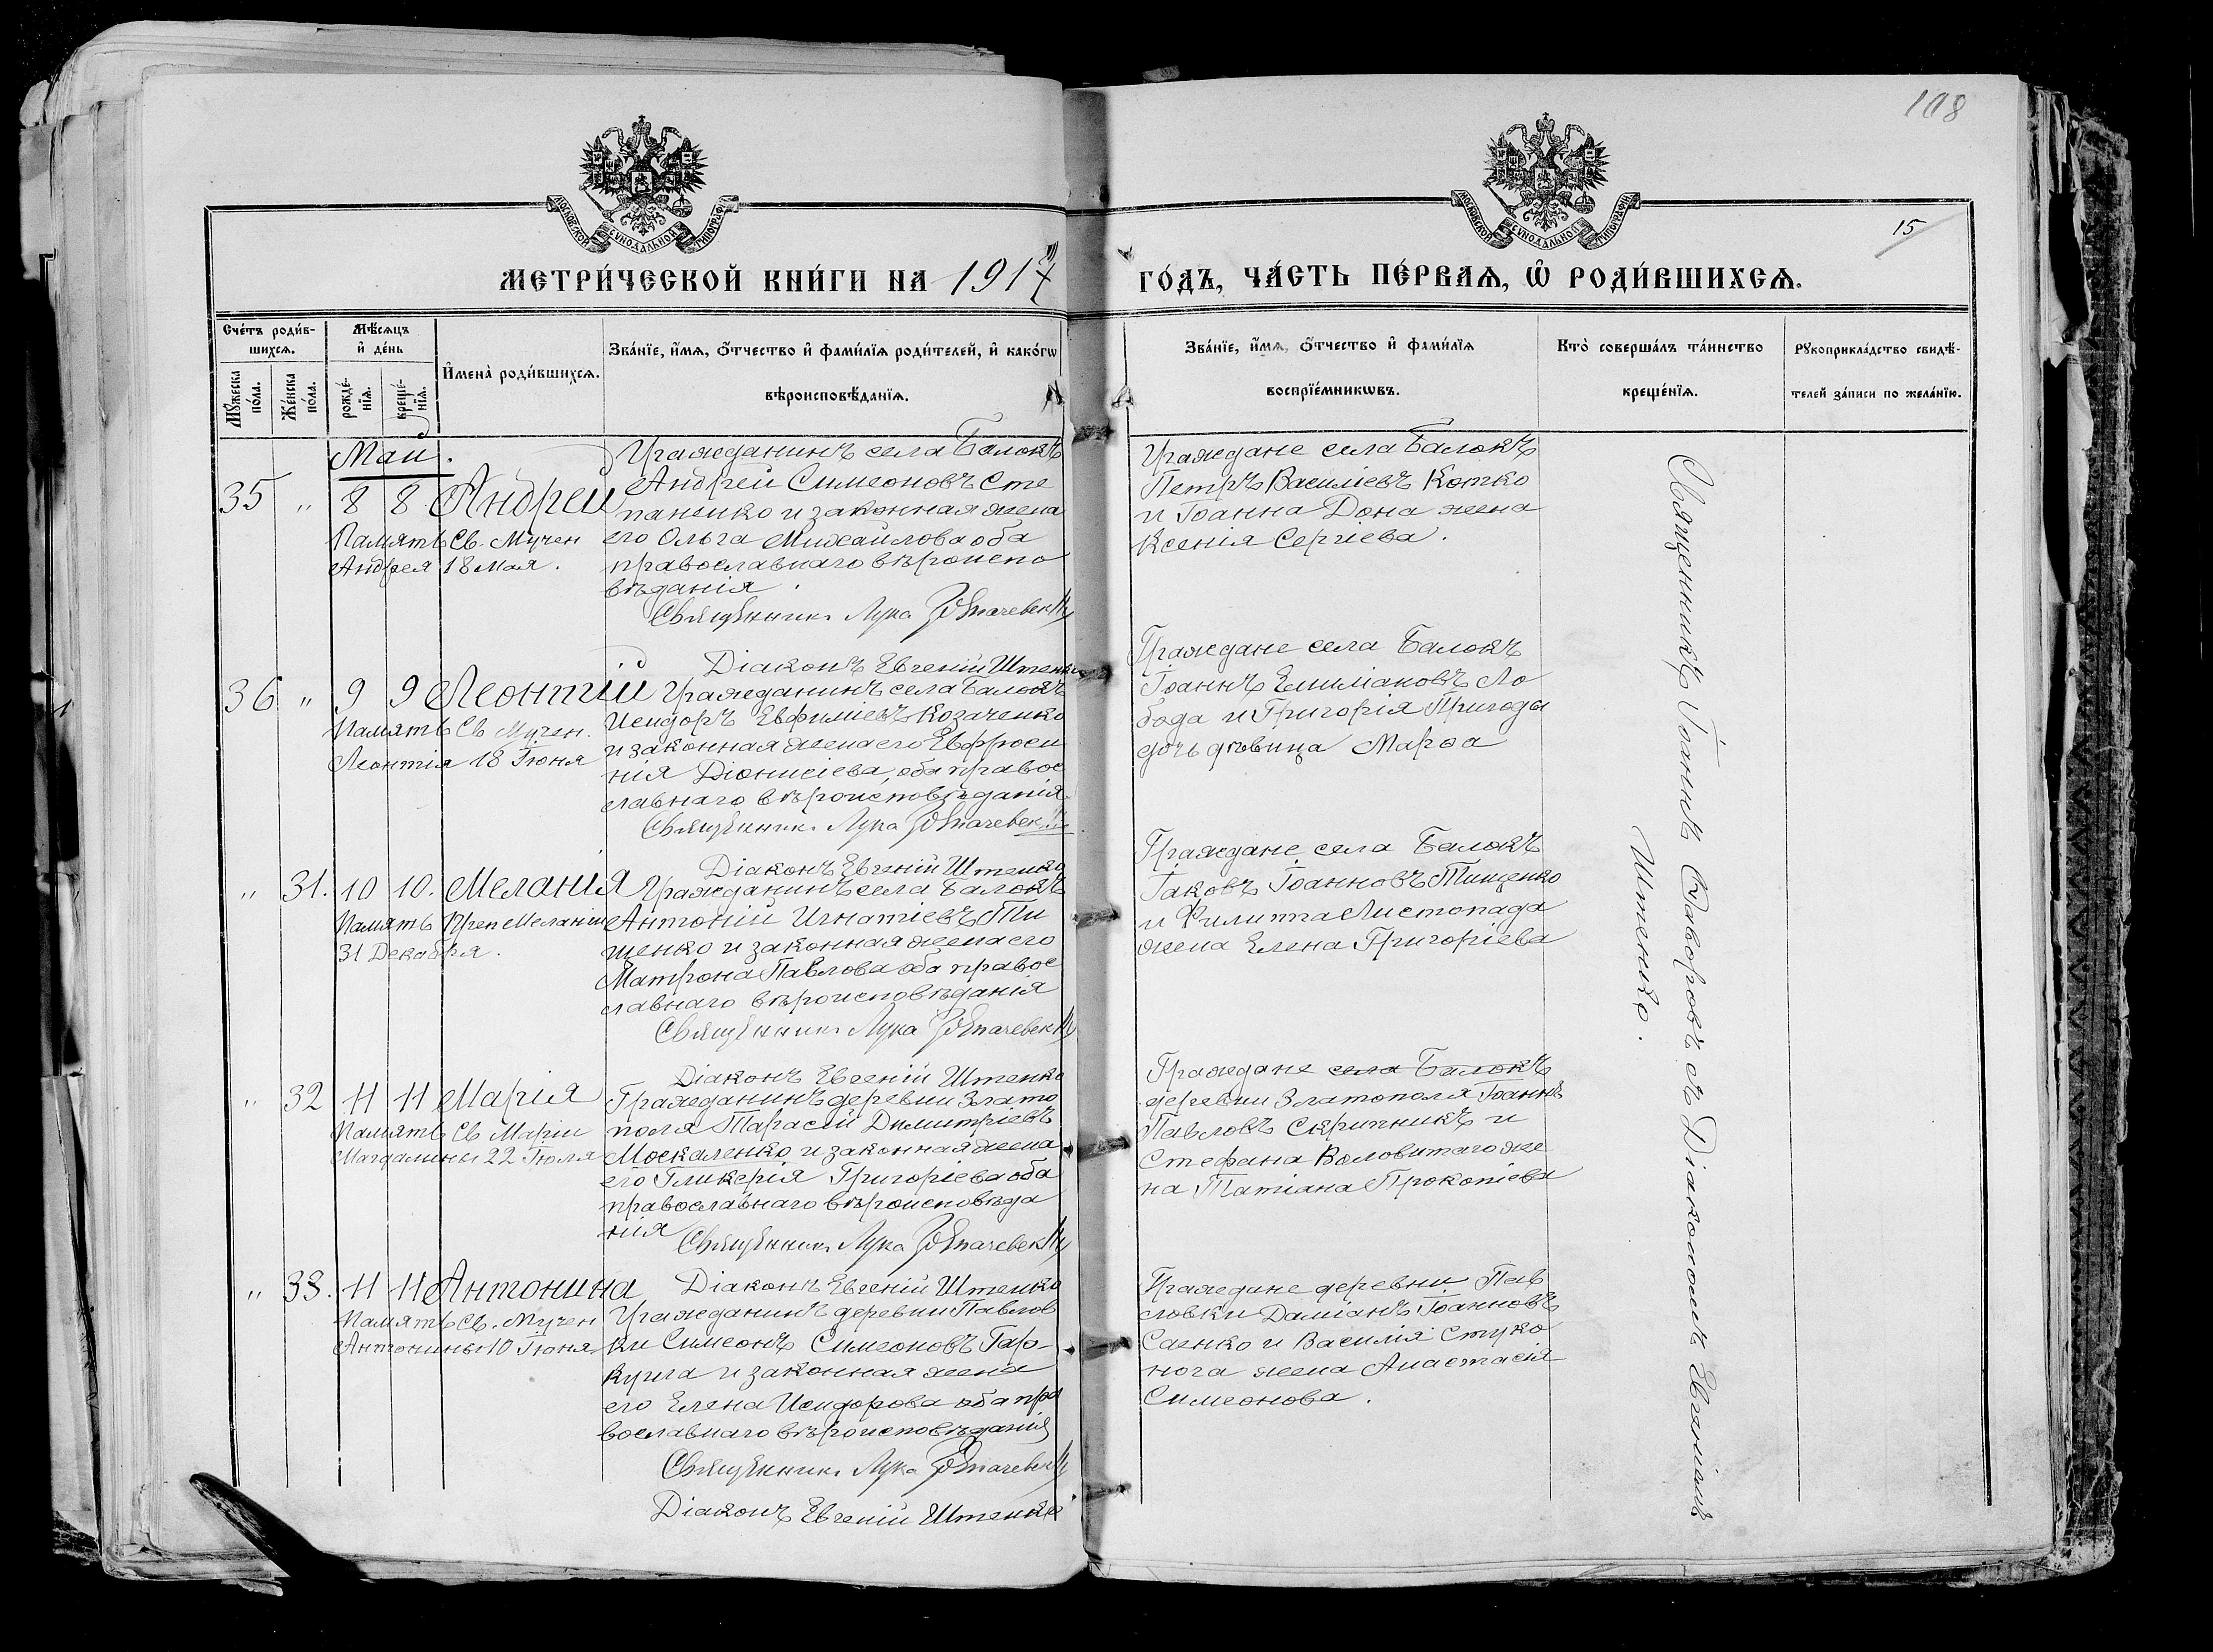 108
МОСКОВСКОЙ СѴНОДАЛЬНОЙ ТИПОГРАФІИ
МОСКОВСКОЙ СѴНОДАЛЬНОЙ ТИПОГРАФІИ
15
МЕТРИ́ЧЕСКОЙ КНИ́ГИ НА 1917
ГО́ДЪ, ЧА́СТЬ ПЕ́РВАѦ, Ѡ҆ РОДИ́ВШИХСѦ.
Сче́тъ роди́в-
шихсѧ.
Мѣ́сѧцъ
и҆ де́нь
Мꙋ́жеска по́ла.
Же́нска по́ла.
рожде́-
нїѧ.
креще́-
нїѧ.
И҆мена̀ роди́вшихсѧ.
Зва́нїе, и҆́мѧ, ѻ҆́тчество и҆ фами́лїѧ роди́телей, и҆ како́гѡ
вѣроисповѣ́данїѧ.
Зва́нїе, и҆́мѧ, ѻ҆́тчество и҆ фами́лїѧ
воспрїе́мникѡвъ.
Кто̀ соверша́лъ та́инство
креще́нїѧ.
Рꙋкоприкла́дство свидѣ́-
телей за́писи по жела́нїю.
Май.
35 " 8 8 Андрей
Память Св. Мучен
Андрея 18 Мая.
Гражданинъ села Балокъ
Андрей Симеоновъ Сте
паненко и законная жена
его Ольга Михайлова оба
православнаго вѣроиспо
вѣданія.
Священникъ Лука
Діаконъ Евгеній Штенко
Граждане села Балокъ
Петръ Василіевъ Котко
и Іоанна Дона жена
Ксенія Сергіева.
36 " 9 9 Леонтій
Память Св Мучен.
Леонтія 18 Іюня
Гражданинъ села Балокъ
Исидоръ Евфиміевъ Козаченко
и законная жена его Евфроси
нія Діонисіева, оба правос
лавнаго вѣроисповѣданія
Священникъ Лука
Діаконъ Евгеній Штенко
Граждане села Балокъ
Іоаннъ Емиліановъ Ло
бода и Григорія Пригоды
дочь дѣвица Марѳа
" 31. 10 10. Меланія
Память Преп Меланіи
31 Декабря.
Гражданинъ села Балокъ
Антоній Игнатіевъ Ти
щенко и законная жена его
Матрона Павлова оба правос
лавнаго вѣроисповѣданія
Священникъ Лука
Діаконъ Евгеній Штенко
Граждане села Балокъ
Іаковъ Іоанновъ Тищенко
и Филиппа Листопада
жена Елена Григоріева
" 32 11 11 Марія
Память Св Маріи
Магдалины 22 Іюля
Гражданинъ деревни Злато
поля Тарасій Димитріевъ
Москаленко и законная жена
его Гликерія Григоріева оба
православнаго вѣроисповѣда
нія
Священникъ Лука
Діаконъ Евгеній Штенко
Граждане села Балокъ
деревни Златополя Іоаннъ
Павловъ Скрипникъ и
Стефана Воловитаго же
на Татіана Прокопіева
" 33. 11 11 Антонина
Память Св. Мучен
Антонины 10 Іюня
Гражданинъ деревни Павлов
ки Симеонъ Симеоновъ Гар-
куша и законная жена
его Елена Исидорова оба пра
вославнаго вѣроисповѣданія
Священникъ Лука
Діаконъ Евгеній Штенко
Граждане деревни Пав
ловки Даміанъ Іоанновъ
Саенко и Василія Стуко
нога жена Анастасія
Симеонова.
Священникъ Іоаннъ съ Діакономъ Евгеніемъ
Штенко.